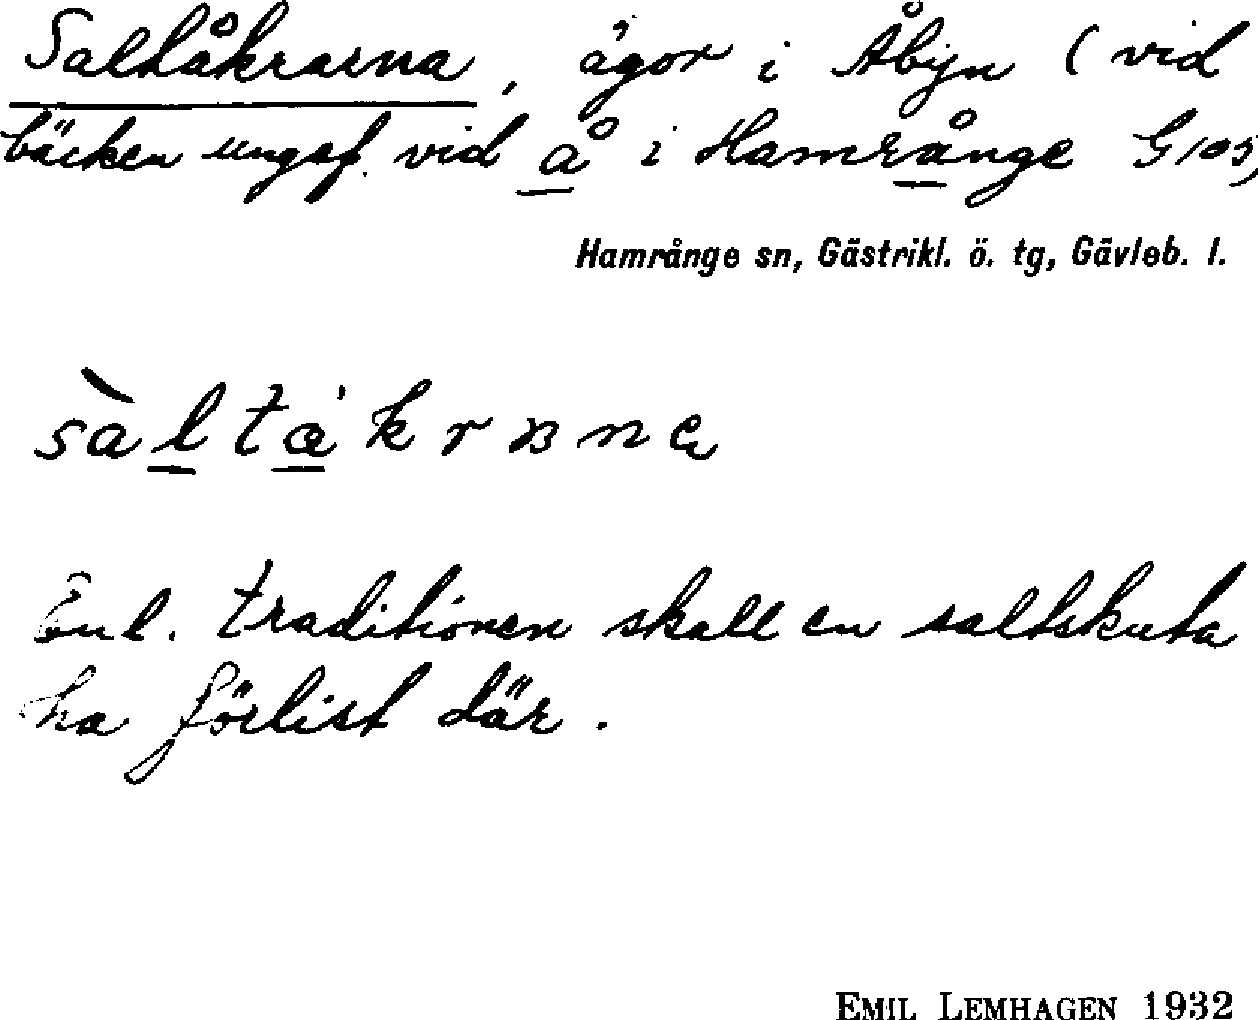 Saltåkrarna, ägor i Åbyn (vid
bäcken ungef. vid å i Hamrånge G 105)
Hamrånge sn, Gästrikl. ö. tg, Gävleb. l.
Enl. traditionen skall en saltskuta
ha förlist där.
EMIL LEMHAGEN 1932